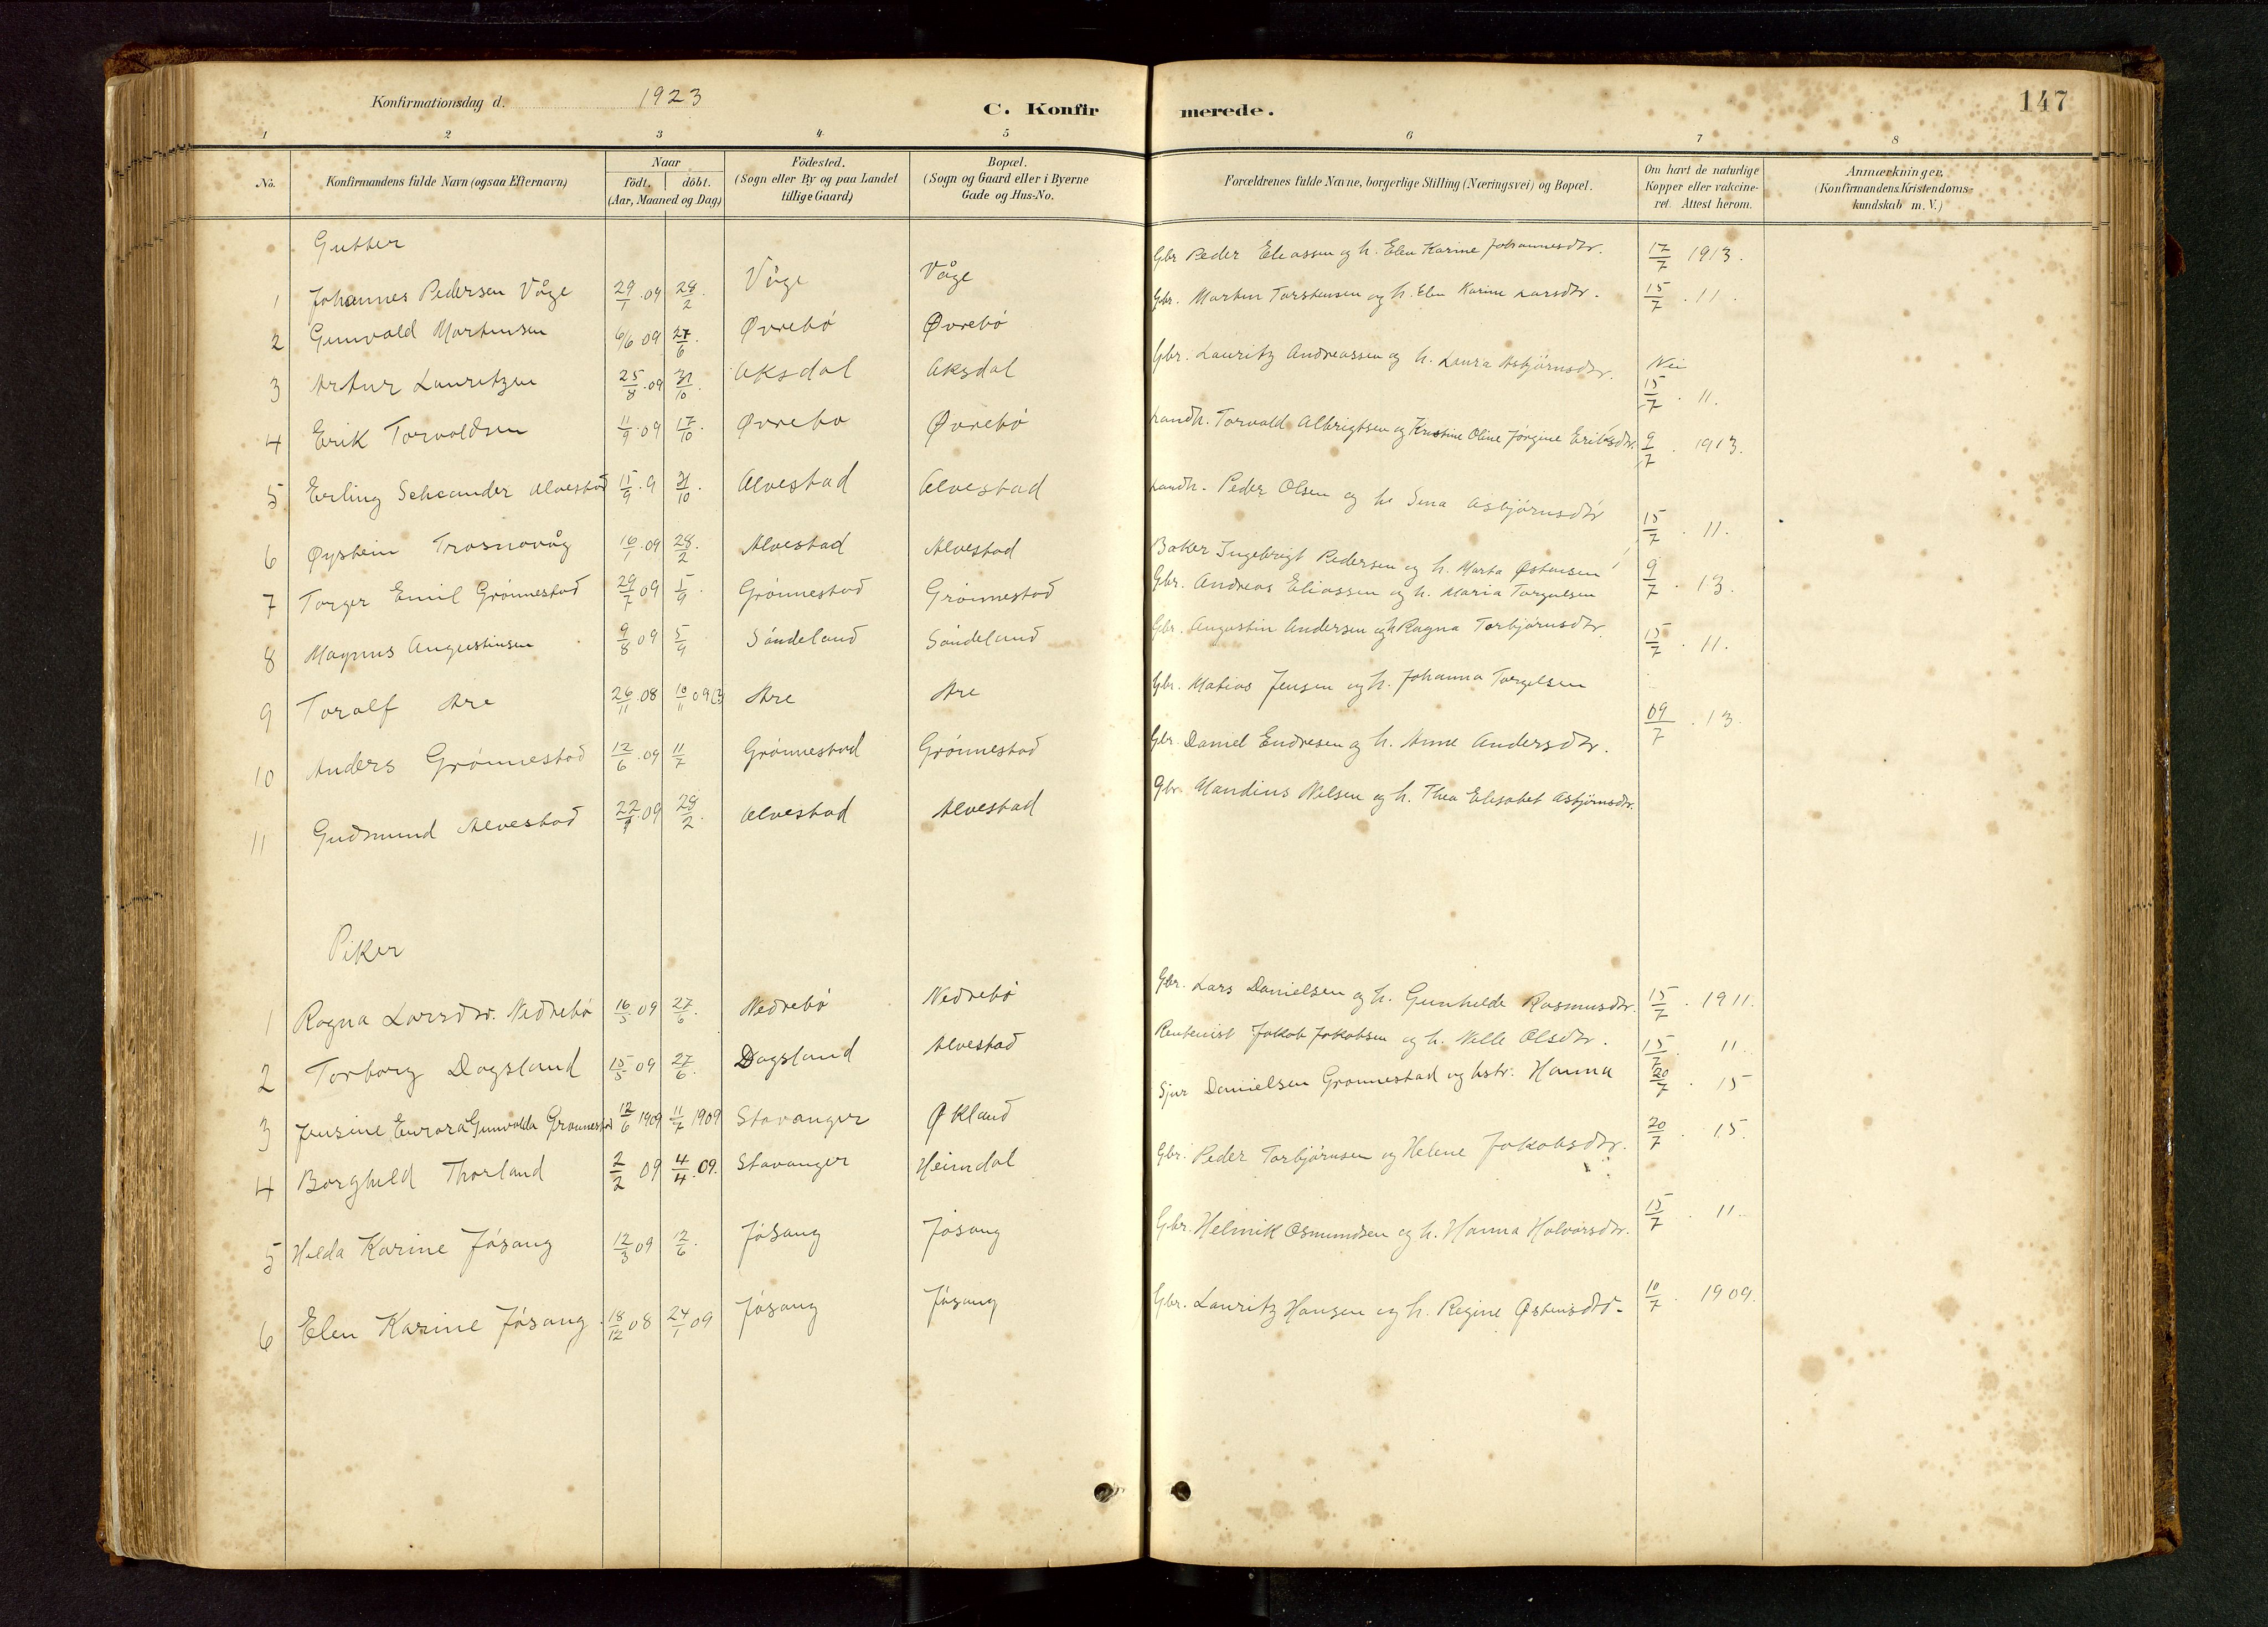 Konfirmationsdag d. 1923
C. Konfirmerede.
147
1 2 3 4 5 6 7 8
No. Konfirmandens fulde Navn (ogsaa Efternavn) Naar födt. döbt. (Aar, Maaned og Dag) Födested. (Sogn eller By og paa Landet tillige Gaard) Bopæl. (Sogn og Gaard eller i Byerne Gade og Hus-No. Forældrenes fulde Navne, borgerlige Stilling (Næringsvei) og Bopæl. Om havt de naturlige Kopper eller vakcineret. Attest herom. Anmærkninger. (Konfirmandens Kristendomskundskab m. V.)
Gutter
1 Johannes Pedersen Våge 29/1 . 09 28/2 . Våge Våge Gbr Peder Eliassen og h. Elen Karine Johannesdtr. 17/7 1913.
2 Gunvald Martinsen 6/6 09 27/6 . Øvrebö Øvrebö Gbr. Martin Torstensen og h. Elen Karine Larsdtr. 15/7 . 11.
3 Artur Lauritzen 25/8 . 09 31/10 . Aksdal Aksdal Gbr. Lauritz Andreassen og h. Laura Asbjörnsdtr. Nei
4 Erik Torvaldsen 11/9 . 09 17/10 . Øvrebo Øvrebö Landh. Torvald Albrigtsen og Kristine Oline Jörgine Eriksdtr. 15/7 . 11.
5 Erling Scheander Alvestad 15/9 . 9 31/10 . Alvestad Alvestad Landh. Peder Olsen og h Sina Asbjörnsdtr 9/7 . 1913.
6 Øystein Trosnavåg 16/1 . 09 28/2 . Alvestad Alvestad Baker Ingebrigt Pedersen og h. Marta Østensen 15/7 . 11.
7 Torger Emil Grönnestad 29/7 09 5/9 . Grönnestad Grönnestad Gbr. Andreas Eliassen og h. Maria Torgelsen 9/7 . 13.
8 Magnus Augustinsen 9/8 09 5/9 Söndeland Söndeland Gbr. Augustin Andersen og h Ragna Torbjörnsdtr. 15/7 . 11.
9 Toralf Are 26/11 . 08 10/11 09 Are Are Gbr. Matias Jensen og h. Johanna Torgelsen
10 Anders Grönnestad 12/6 . 09 11/7 Grönnestad Grönnestad Gbr. Daniel Endresen og h. Anne Andersdtr. 09/7 . 13.
11 Gudmund Alvestad 22/9 . 09 28/2 . Alvestad Alvestad Gbr. Mandius Nilsen og h. Thea Elisabet Asbjörnsdtr.
Piker
1 Ragna Larsdtr. Nedrebö 16/5 09 27/6 . Nedrebö Nedrebö Gbr. Lars Danielsen og h. Gunhilde Rasmusdtr. 15/7 . 1911.
2 Torborg Dagsland 15/5 09 27/6 . Dagsland Alvestad Rentenist Jakob Jakobsen og h. Nille Olsdtr. 15/7 . 11.
3 Jensine Eurora Gunvalda Gronnestad 12/6 1909 11/7 1909 Stavanger Økland Sjur Danielsen Gronnestad og hstr. Hanna 20/7 . 15
4 Borghild Thorland 2/2 09 4/4 . 09. Stavanger Heimdal Gbr. Peder Torbjörnsen og Helene Jakobsdtr. 20/7 . 15.
5 Hilda Karine Jösang 12/3 09 12/6 . Jösang Jösang Gbr. Helmik Osmundsen og h. Hanna Halvorsdtr. 15/7 . 11.
6 Elen Karine Jösang . 18/12 08 24/1 09 Jösang Jösang Gbr. Lauritz Hansen og h. Regine Østensdtr. 10/7 . 1909.